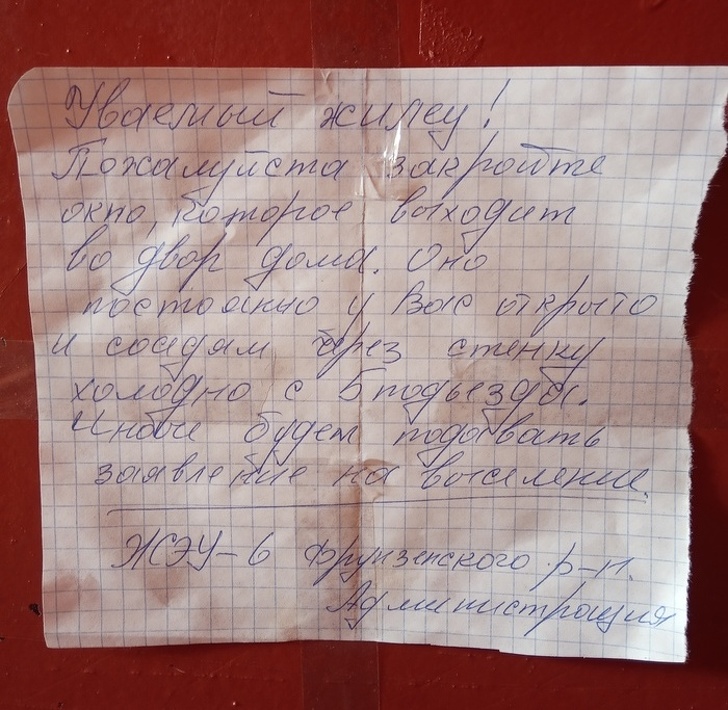 Уваемый жилец!
Пожалуйста закройте
окно, которое выходит
во двор дома. Оно
постоянно у Вас открыто
и соядям через стенку
холодно с 5 подьезда.
Иначе будем подавать
заявление на выселение.
ЖЭУ-6 Фрунзенского р-н.
Администрация